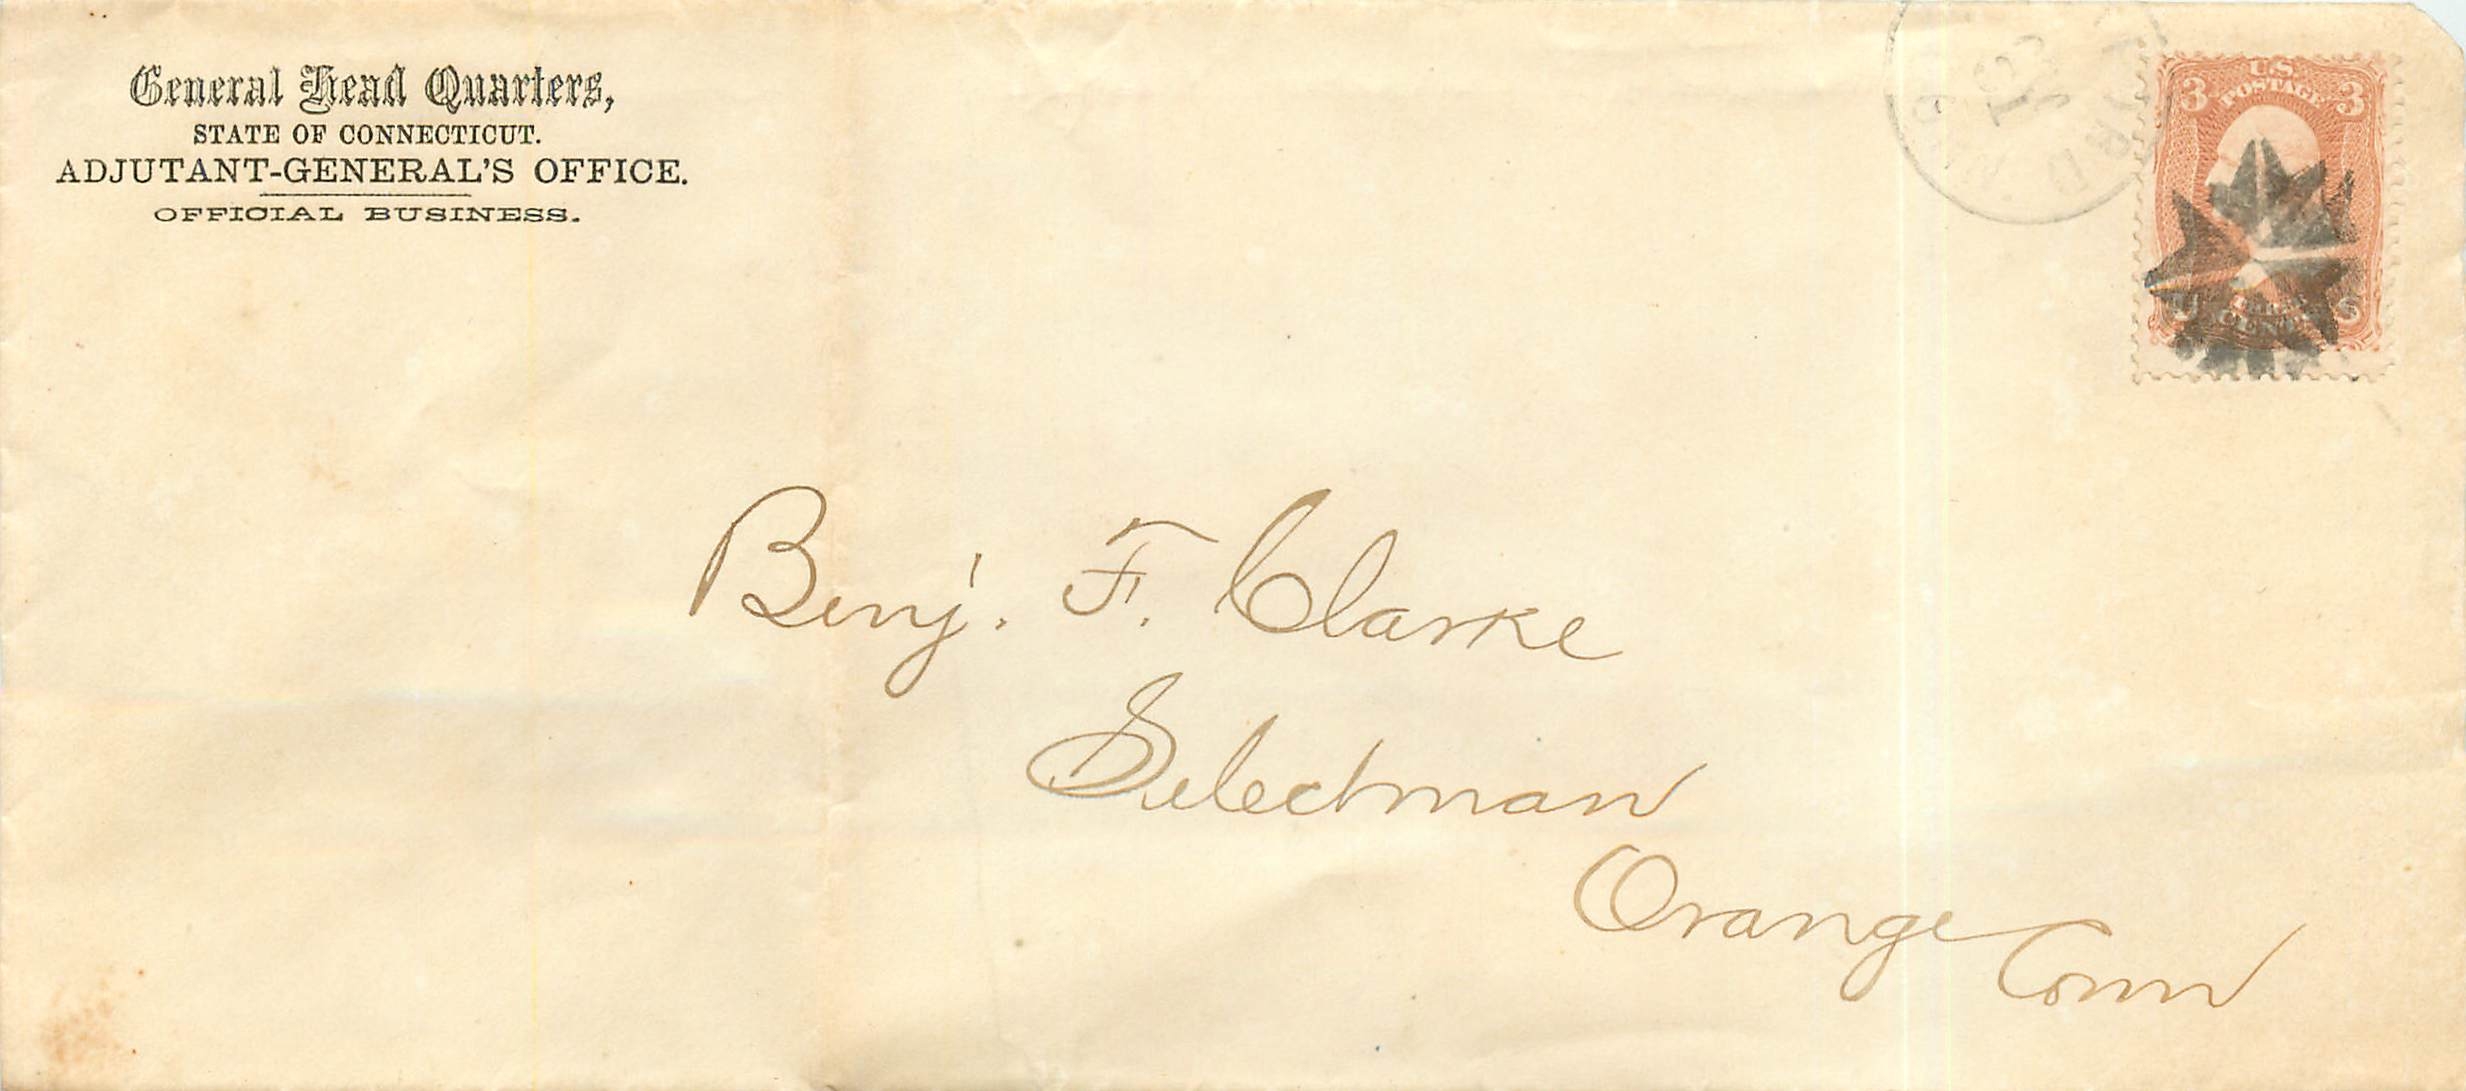 General Head Quarters,
STATE OF CONNECTICUT.
ADJUTANT-GENERAL'S OFFICE.
OFFICIAL BUSINESS.
3 U.S. POSTAGE 3
U CENTS S
Benj. F. Clarke
Selectman
Orange Conn